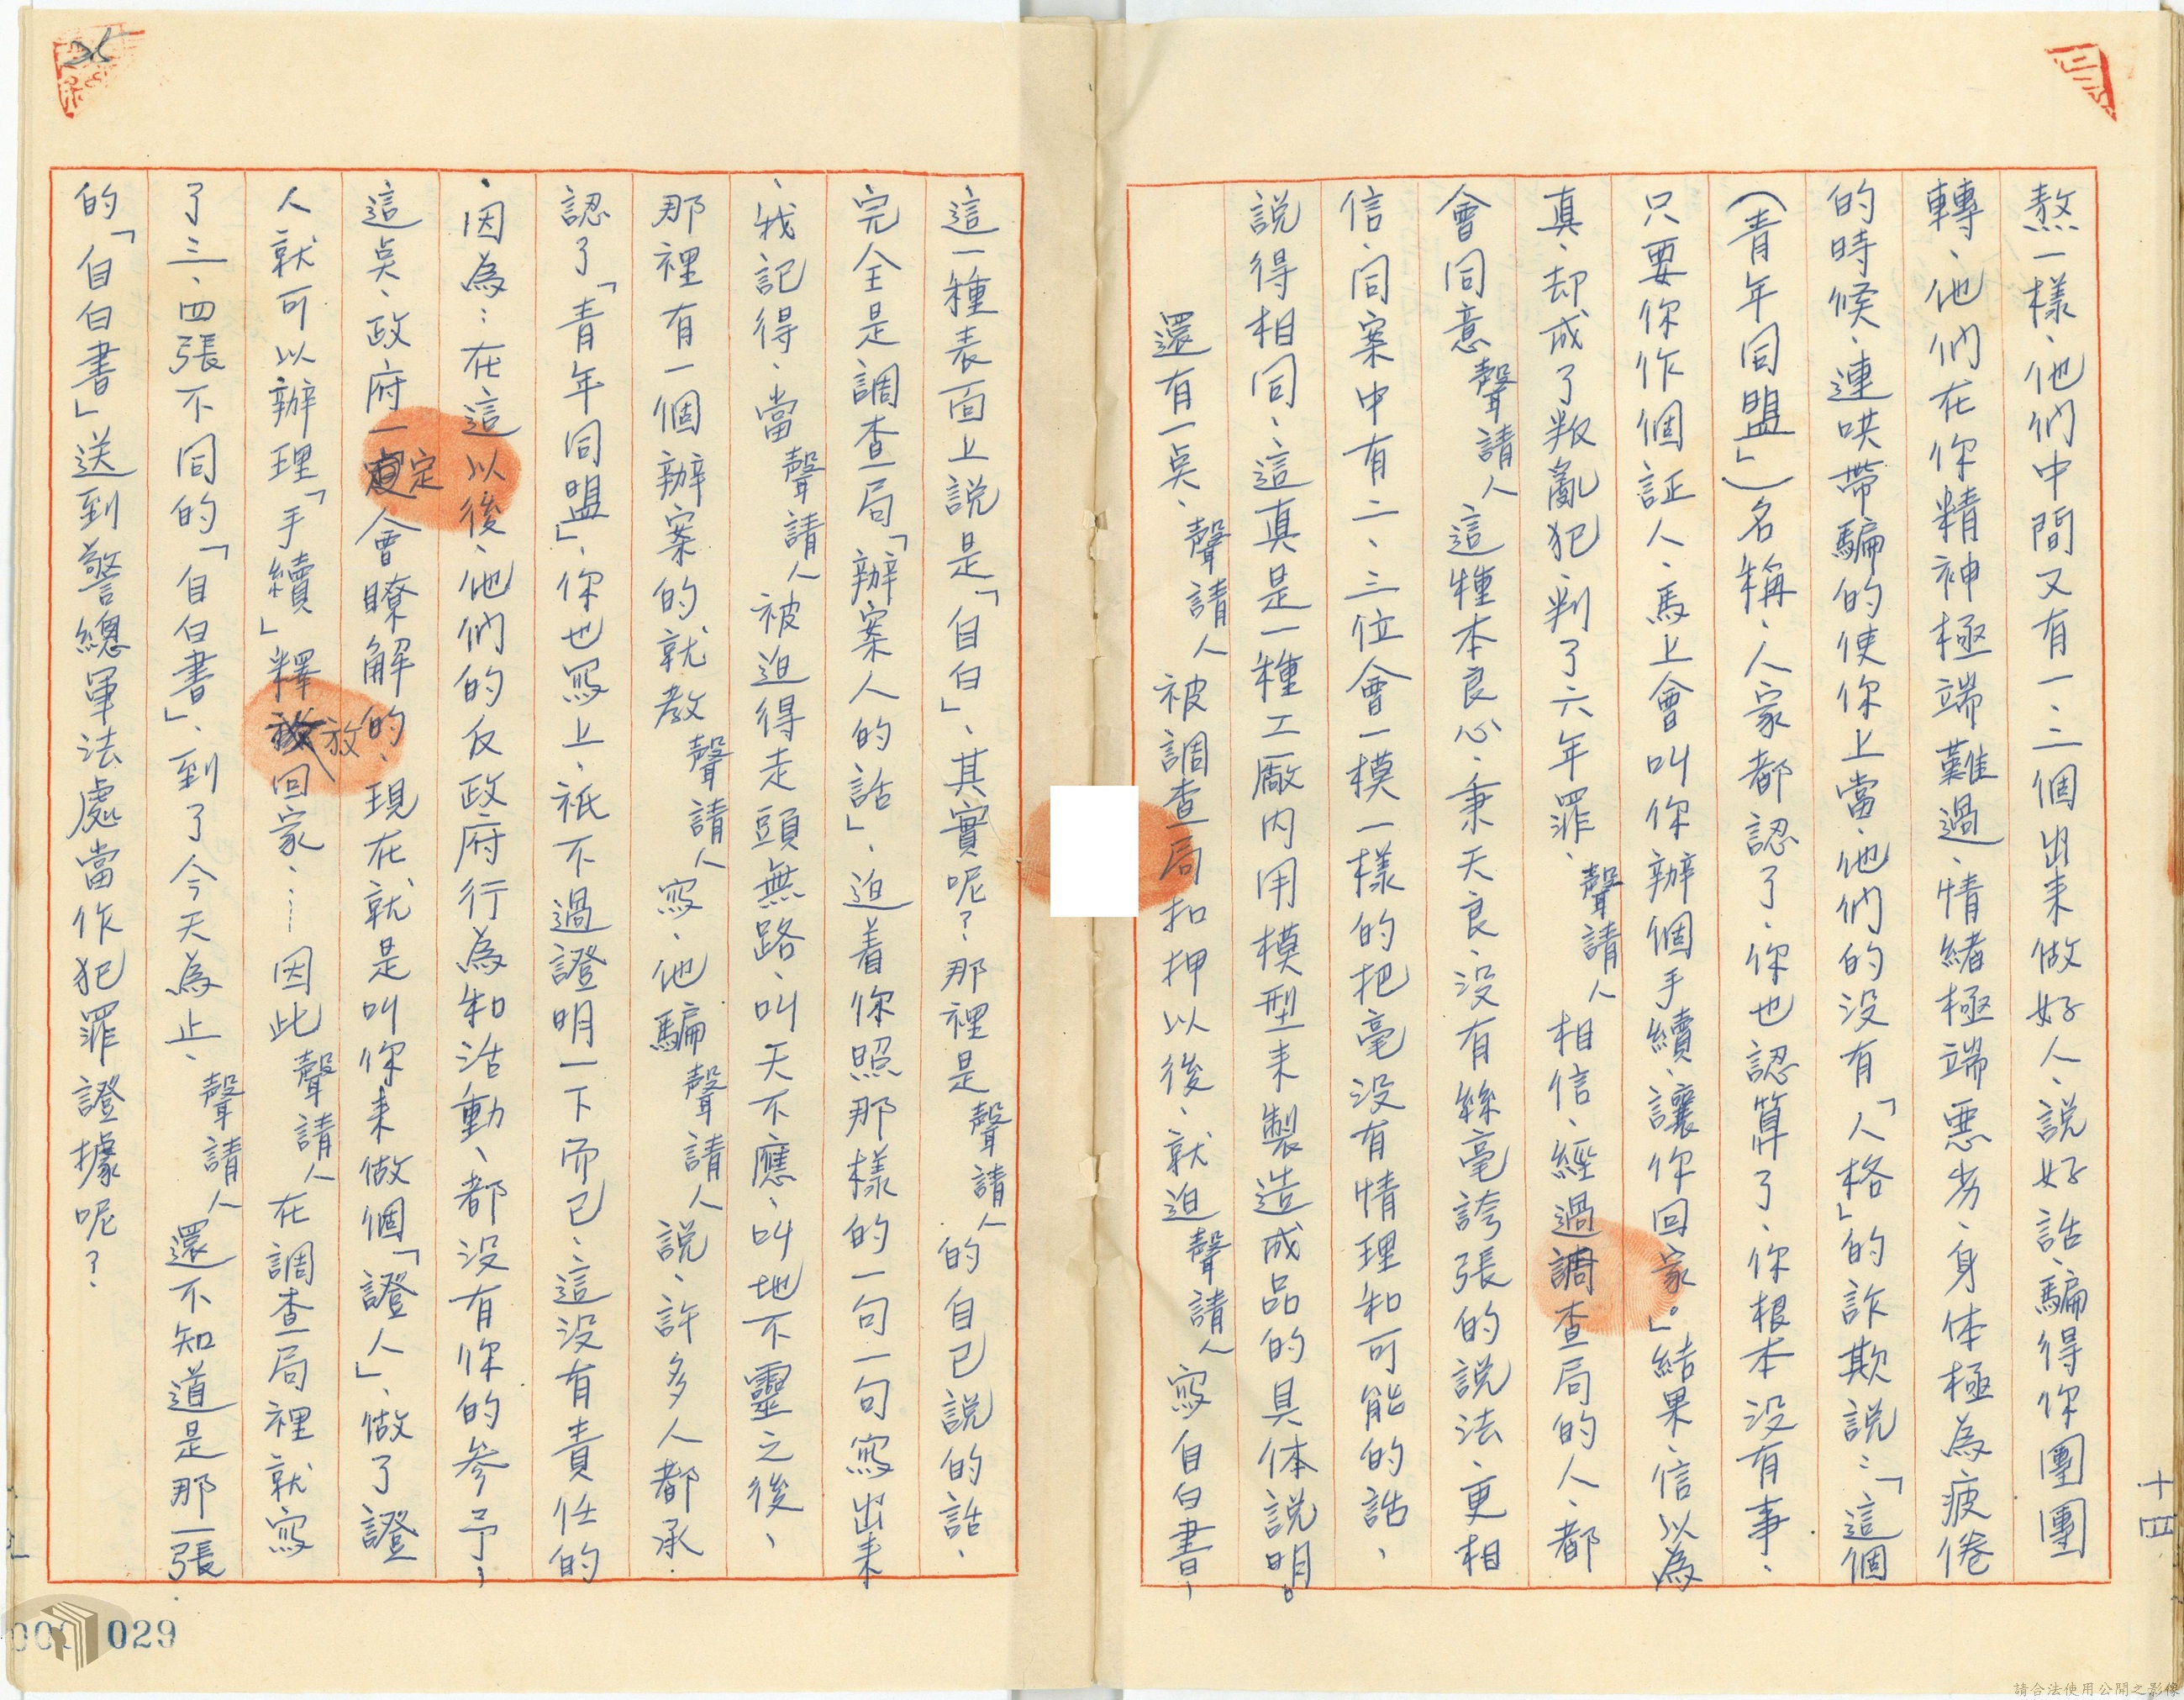 十四
熬一樣、他們中間又有一、二個出来做好人、説好話、騙得你團團
轉、他們在你精神極端難過、情緒極端惡劣、身体極為疲倦
的時候、連哄帶騙的使你上當、他們的没有「人格」的詐欺説：「這個
(青年同盟」)名稱、人家都認了、你也認算了、你根本没有事、
只要你作個証人、馬上會叫你辦個手續、讓你回家。」結果、信以為
真、却成了叛亂犯、判了六年罪、聲請人相信、經過調查局的人、都
會同意聲請人這種本良心、秉天良、没有絲毫誇張的説法、更相
信、同案中有二、三位會一模一樣的把毫没有情理和可能的話、
説得相同、這真是一種工廠内用模型来製造成品的具体説明。
還有一㸃、聲請人被調查局扣押以後、就迫聲請人寫自白書，
這一種表面上説是「自白」、其實呢？那裡是聲請人的自己説的話、
完全是調查局「辦案人的話」、迫着你照那樣的一句一句寫出来
、我記得、當聲請人被迫得走頭無路、叫天不應、叫地不靈之後、
那裡有一個辦案的就教聲請人寫、他騙聲請人説、許多人都承
認了「青年同盟」、你也寫上、祇不過證明一下而已、這没有責任的
、因為：在這以後、他們的反政府行為和活動、都没有你的参予，
這㸃、政府一定會瞭解的、現在就是叫你来做個「證人」、做了證
人就可以辦理「手續」釋放回家、……因此聲請人在調查局裡就寫
了三、四張不同的「自白書」、到了今天為止、聲請人還不知道是那一張
的「自白書」送到警總軍法處當作犯罪證據呢？
000 029
請合法使用公開之影像